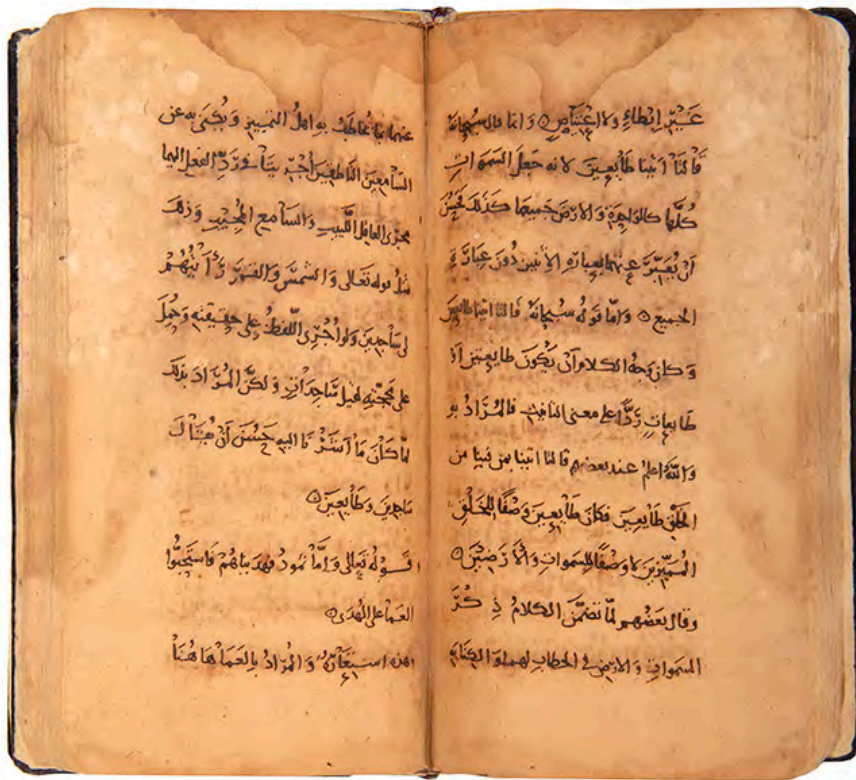 غَيْرِ إبْطَاءٍ وَلا اعْتِيَاصٍ وَانما قال سُبحانهُ
قَالَتَا أَتينا طَائِعِينَ لأنه جَعَل السَمَواتِ
كُلَّها كالوَاحِدَةِ وَالارْضَ جَميعها كَذلكَ فَحَسُنَ
أنْ يُعَبِّرَ عَنهما بعِبَارَةِ الاثنين دُونَ عِبَارَةِ
الجَميع وَامَّا قَولُه سُبحَانهُ قَالتَا اتينا طَائِعِينَ
وَكان وَجهُ الكلامِ انْ يَكُونَ طايعتين اوْ
طَايعاتٍ رَدًّا على معنى التانيث فالمُرَادُ بهِ
وَاللَّهُ اعلمُ عند بعضهم قالتا اتينا بمن فينا من
الخَلْقِ طَائِعِينَ فكانَ طَائِعِينَ وَصْفًا للخَلْقِ
المُمَيِّزِينَ لا وَصْفًا للسَمَواتِ وَالأَرَضِيْنَ
وقالَ بَعضُهم لمّا تضَمَّنَ الكلامُ ذِكْرَ
السَمواتِ وَالارْضِ في الخطابِ لهما وَالكِنَايةِ
عنهما بمَا يُخَاطَبُ به اهلُ التمييزِ وَيُكْنَى به عن
السَّامِعينَ النَاطِقينَ أُجْرِيَتَا في رَدِّ الفِعلِ اليهما
مَجْرَى العَاقِلِ اللَّبِيبِ وَالسَامعِ المُجِيْبِ وَذلك
مثلُ قوله تَعَالى وَالشمْسَ وَالقَمَرَ رَأَيْتُهُمْ
لي سَاجِدِينَ وَلو أُجْرِيَ اللَّفْظُ عَلى حَقِيقَتِهِ وَحُمِلَ
على مَحَجَّتِهِ لَقِيلَ سَاجِدَاتٍ وَلكنَّ المُرَادَ بذلكَ
لمّا كَانَ مَا اشَرْنَا اليهِ حَسُنَ أنْ يُقَالَ
سَاجِدِينَ وَطَائِعِينَ
قَوْلُه تَعَالى وَأَمَّا ثَمُودُ فهَدَينَاهُمْ فَاسْتَحَبُّوا
العَمَا عَلى الهُدَى
وهذه استِعَارَةٌ وَالمُرَادُ بالعَمَا هَاهُنَا